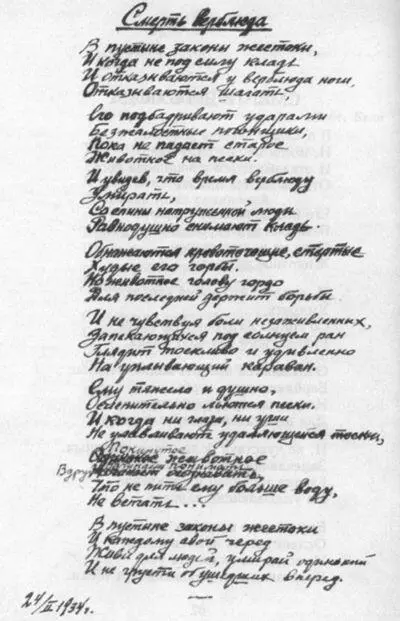 Смерть верблюда
В пустыне законы жестоки,
И когда не под силу кладь
И отказываются у верблюда ноги,
Отказываются шагать
Его подбадривают ударами
Безжалостные погонщики,
Пока не падает старое
Животное на пески.
И увидев, что время верблюду
Умирать,
Со спины натруженной люди
Равнодушно снимают кладь.
Обнажаются кровоточащие, стертые
Худые его горбы.
Но животное голову гордо
Для последней держит борьбы
И не чувствуя боли незаживленных,
Запекающихся под солнцем ран
Глядит тоскливо и удивленно
На уплывающий караван.
Ему тяжело и душно,
Ослепительно льются пески.
И когда ни глаза, ни уши
Не улавливают удаляющейся
Покинутое
Одинокое животное
Вдруг начинает понимать
Что не пить ему больше воду,
Не встать...
В пустыне законы жестоки
И каждому свой черед
Живи для людей, умирай одинокий
И не грусти об ушедших вперед.
24/II 1934г.